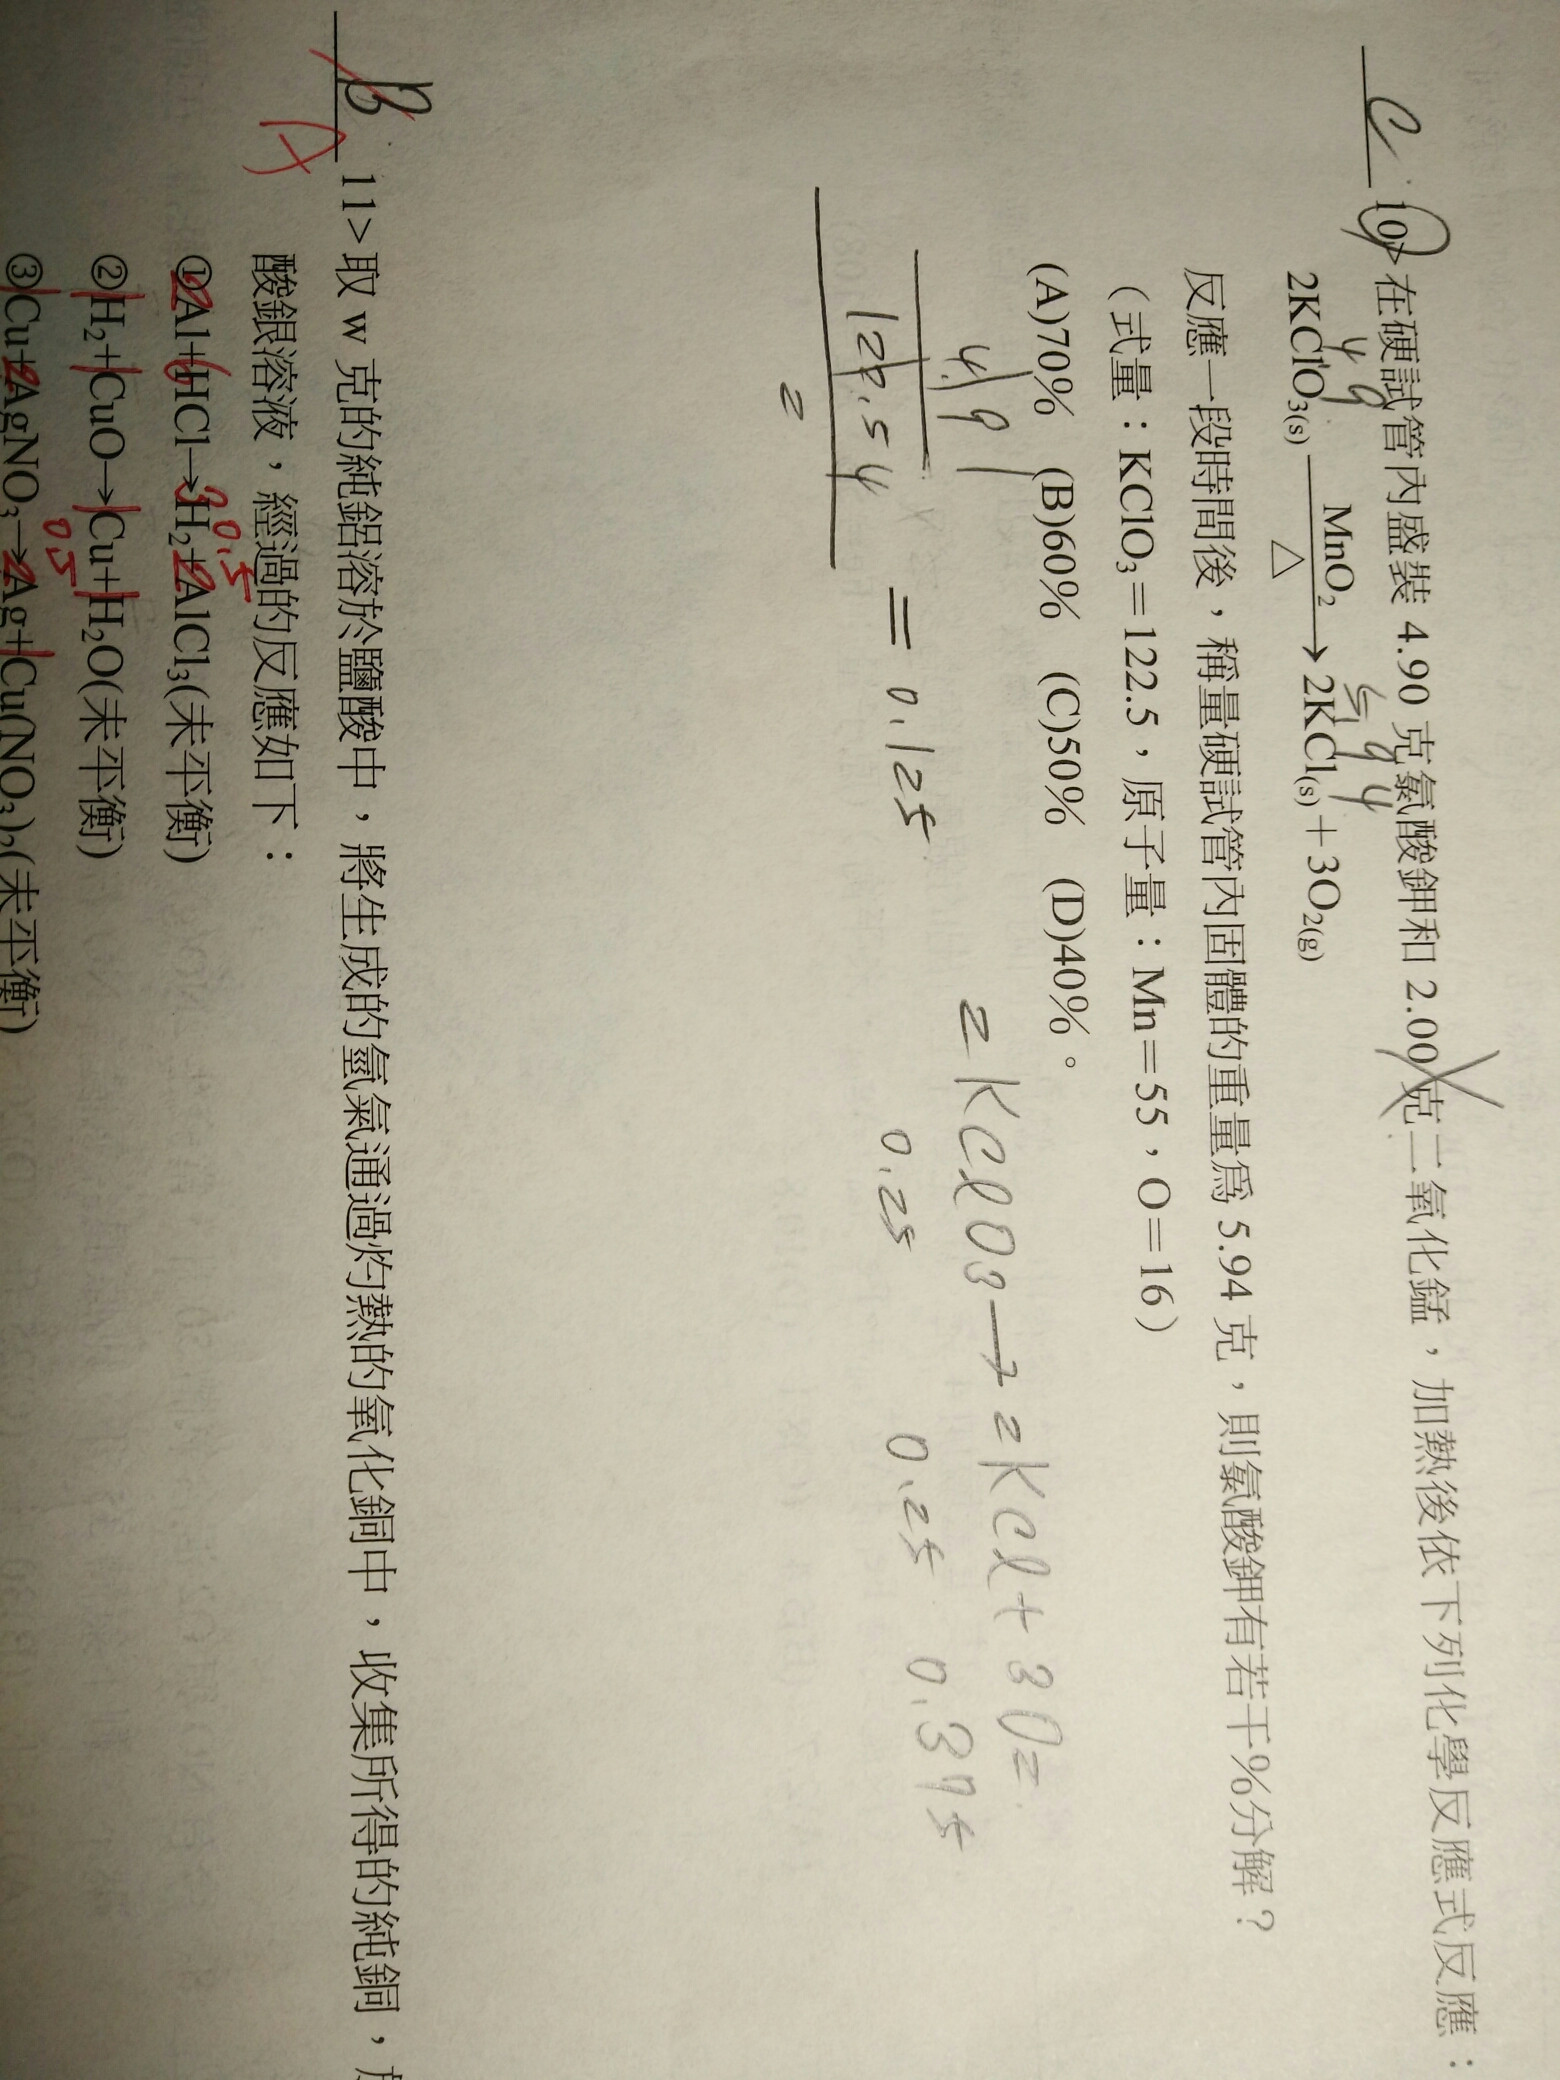 C 10>在硬試管內盛裝 4.90 克氯酸鉀和 2.00 克二氧化錳，加熱後依下列化學反應式反應：
4.9 5.94
2KClO₃(s) MnO₂ △ → 2KCl(s)＋3O₂(g)
反應一段時間後，稱量硬試管內固體的重量為 5.94 克，則氯酸鉀有若干%分解？
(式量：KClO₃＝122.5，原子量：Mn＝55，O＝16)
(A)70% (B)60% (C)50% (D)40%。
4.9
122.5 = 0.125
2KClO3→2KCl+3O2
0.25 0.25 0.375
2
B A 11>取 w 克的純鋁溶於鹽酸中，將生成的氫氣通過灼熱的氧化銅中，收集所得的純銅，
酸銀溶液，經過的反應如下：
①2Al+6HCl→3H₂+2AlCl₃(未平衡)
0.5
②H₂+CuO→Cu+H₂O(未平衡)
0.5
③Cu+2AgNO₃→2Ag+Cu(NO₃)₂(未平衡)